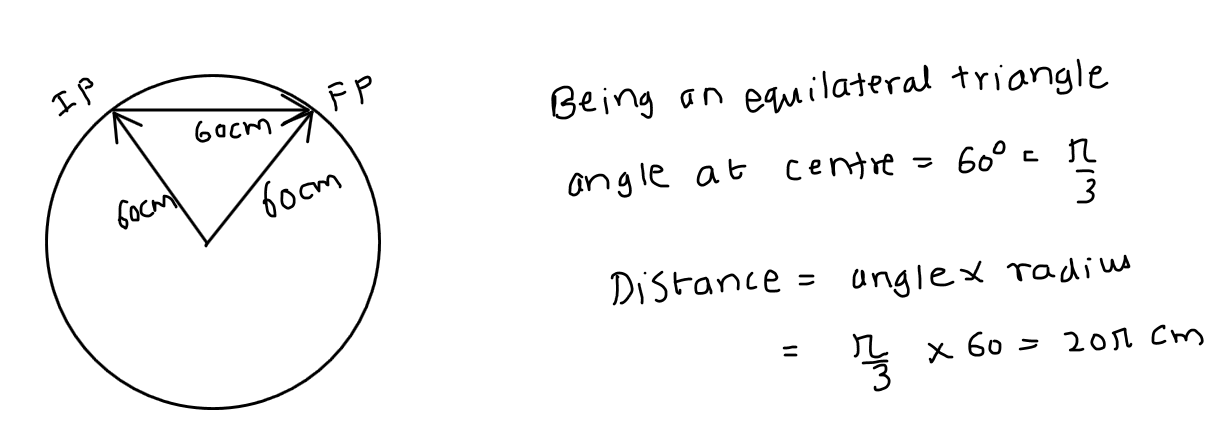 IP
FP
60cm
60cm
60cm
Being an equilateral triangle
angle at centre = 60° = π/3
Distance = angle x radius
= π/3 x 60 = 20π cm